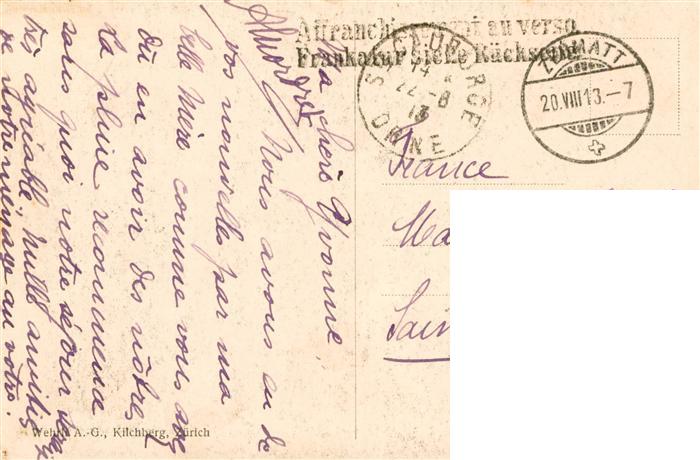 Affranchissement au verso
Frankatur siehe Rückseite
ST VALBURGE
14
22-8
13
ZERMATT
20.VIII 13.-7
Ma chère Yvonne,
Nous avons eu de
vos nouvelles par ma
belle Mère comme vous avez
dû en avoir des nôtres,
La pluie recommence
sans quoi notre séjour serait
très agréable, mille amitiés
de notre ménage au vôtre.
France
Ma
Sain
Wehrli A.-G., Kilchberg, Zürich